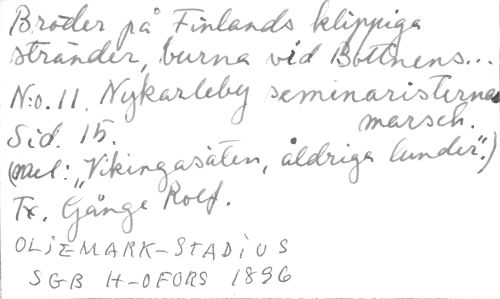 Bröder på Finlands klippiga
stränder, burna vid Bottnens...
N:o. 11. Nykarleby seminaristernas
marsch.
Sid. 15.
(mel: „Vikingasäten, åldriga lunder".)
Tx. Gånge Rolf.
OLJEMARK-STADIUS
SGB H-OFORS 1896